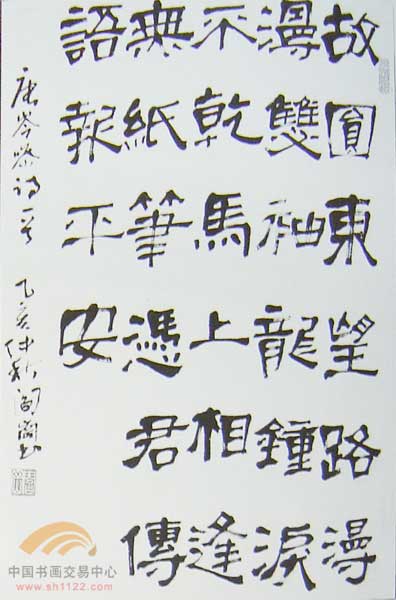 故圓東望路漫
漫雙袖龍鐘淚
不乾馬上相逢
無紙筆憑君傳
語報平安
唐岑參詩一首 乙亥仲秋
中国书画交易中心
www.sh1122.com